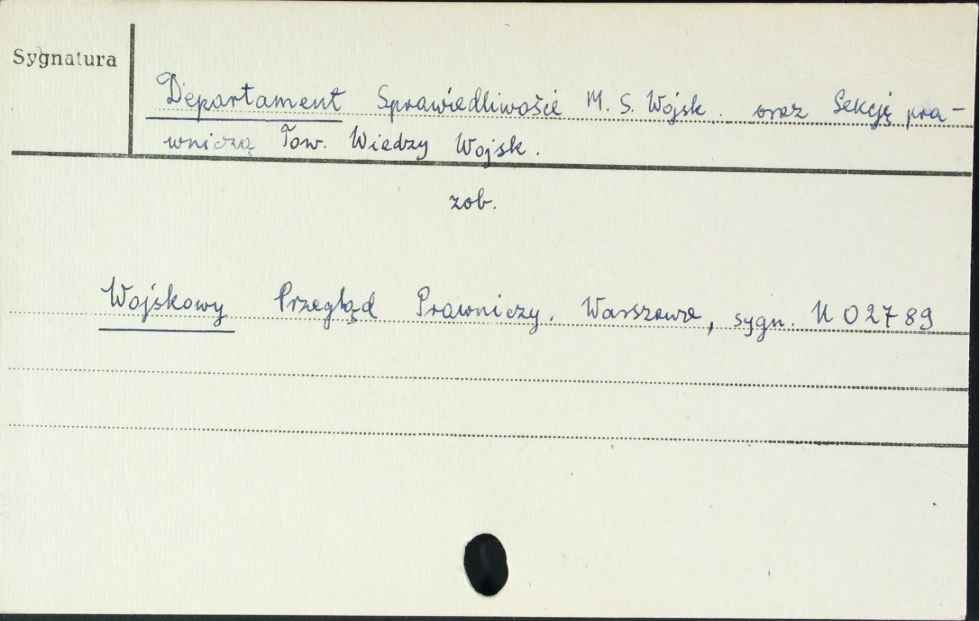 Sygnatura
Departament Sprawiedliwości M. S. Wojsk. oraz Sekcję pra-
wniczą Tow. Wiedzy Wojsk.
zob.
Wojskowy Przegląd Prawniczy. Warszawa, sygn. U 02789